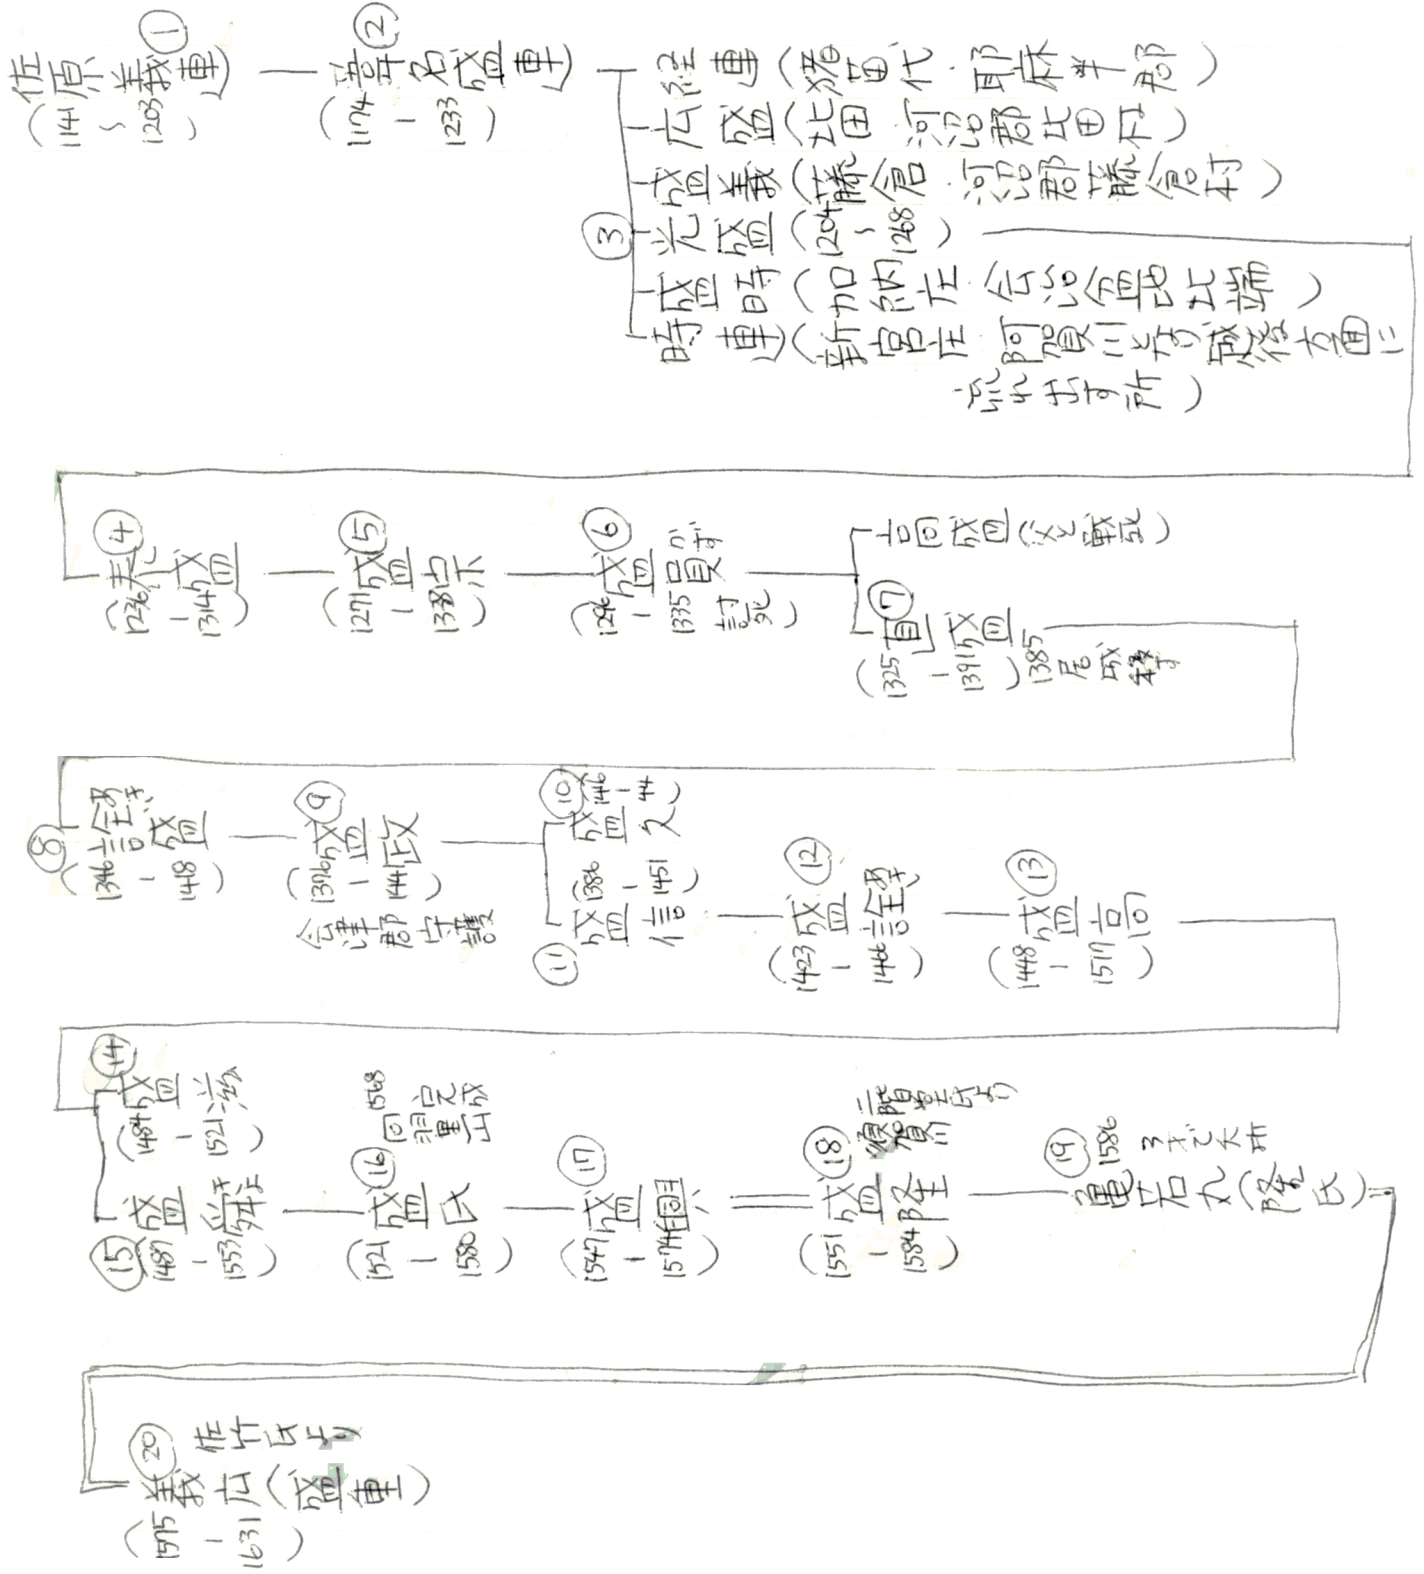 ① 佐原義連
(1141~1203)
② 葦名盛連
(1174-1233)
経連(猪苗代・耶麻半郡)
広盛(北田・河沼郡北田村)
盛義(藤倉・河沼郡藤倉村)
③ 光盛(1204~1268)
盛時(加納庄・会津盆地北端)
時連(新宮庄・阿賀川となり越後方面に
流れ出す所)
④ 泰盛
(1236-1314)
⑤ 盛宗
(1271-1338)
⑥ 盛員かず
(1296-1335討死)
高盛(父と戦死)
⑦ 直盛
(1325-1391)1385居城移す
⑧ 詮盛
あき
(1346-1418)
⑨ 盛政
(1376-1441)
会津郡守護
⑩ 盛久
(1416-44)
⑪ 盛信
(1386-1451)
⑫ 盛詮
あき
(1423-1466)
⑬ 盛高
(1448-1517)
⑭ 盛滋
(1484-1521)
⑮ 盛舜
きよ
(1487-1553)
⑯ 盛氏
(1521-1580)
1568
向羽黒
完成
⑰ 盛興
(1547-1574)
⑱ 盛隆
(1551-1584)
須賀川
二階堂氏より
⑲ 亀若丸(隆氏)
1586
3才で夭折
⑳ 義広(盛重)
佐竹氏より
(1575-1631)